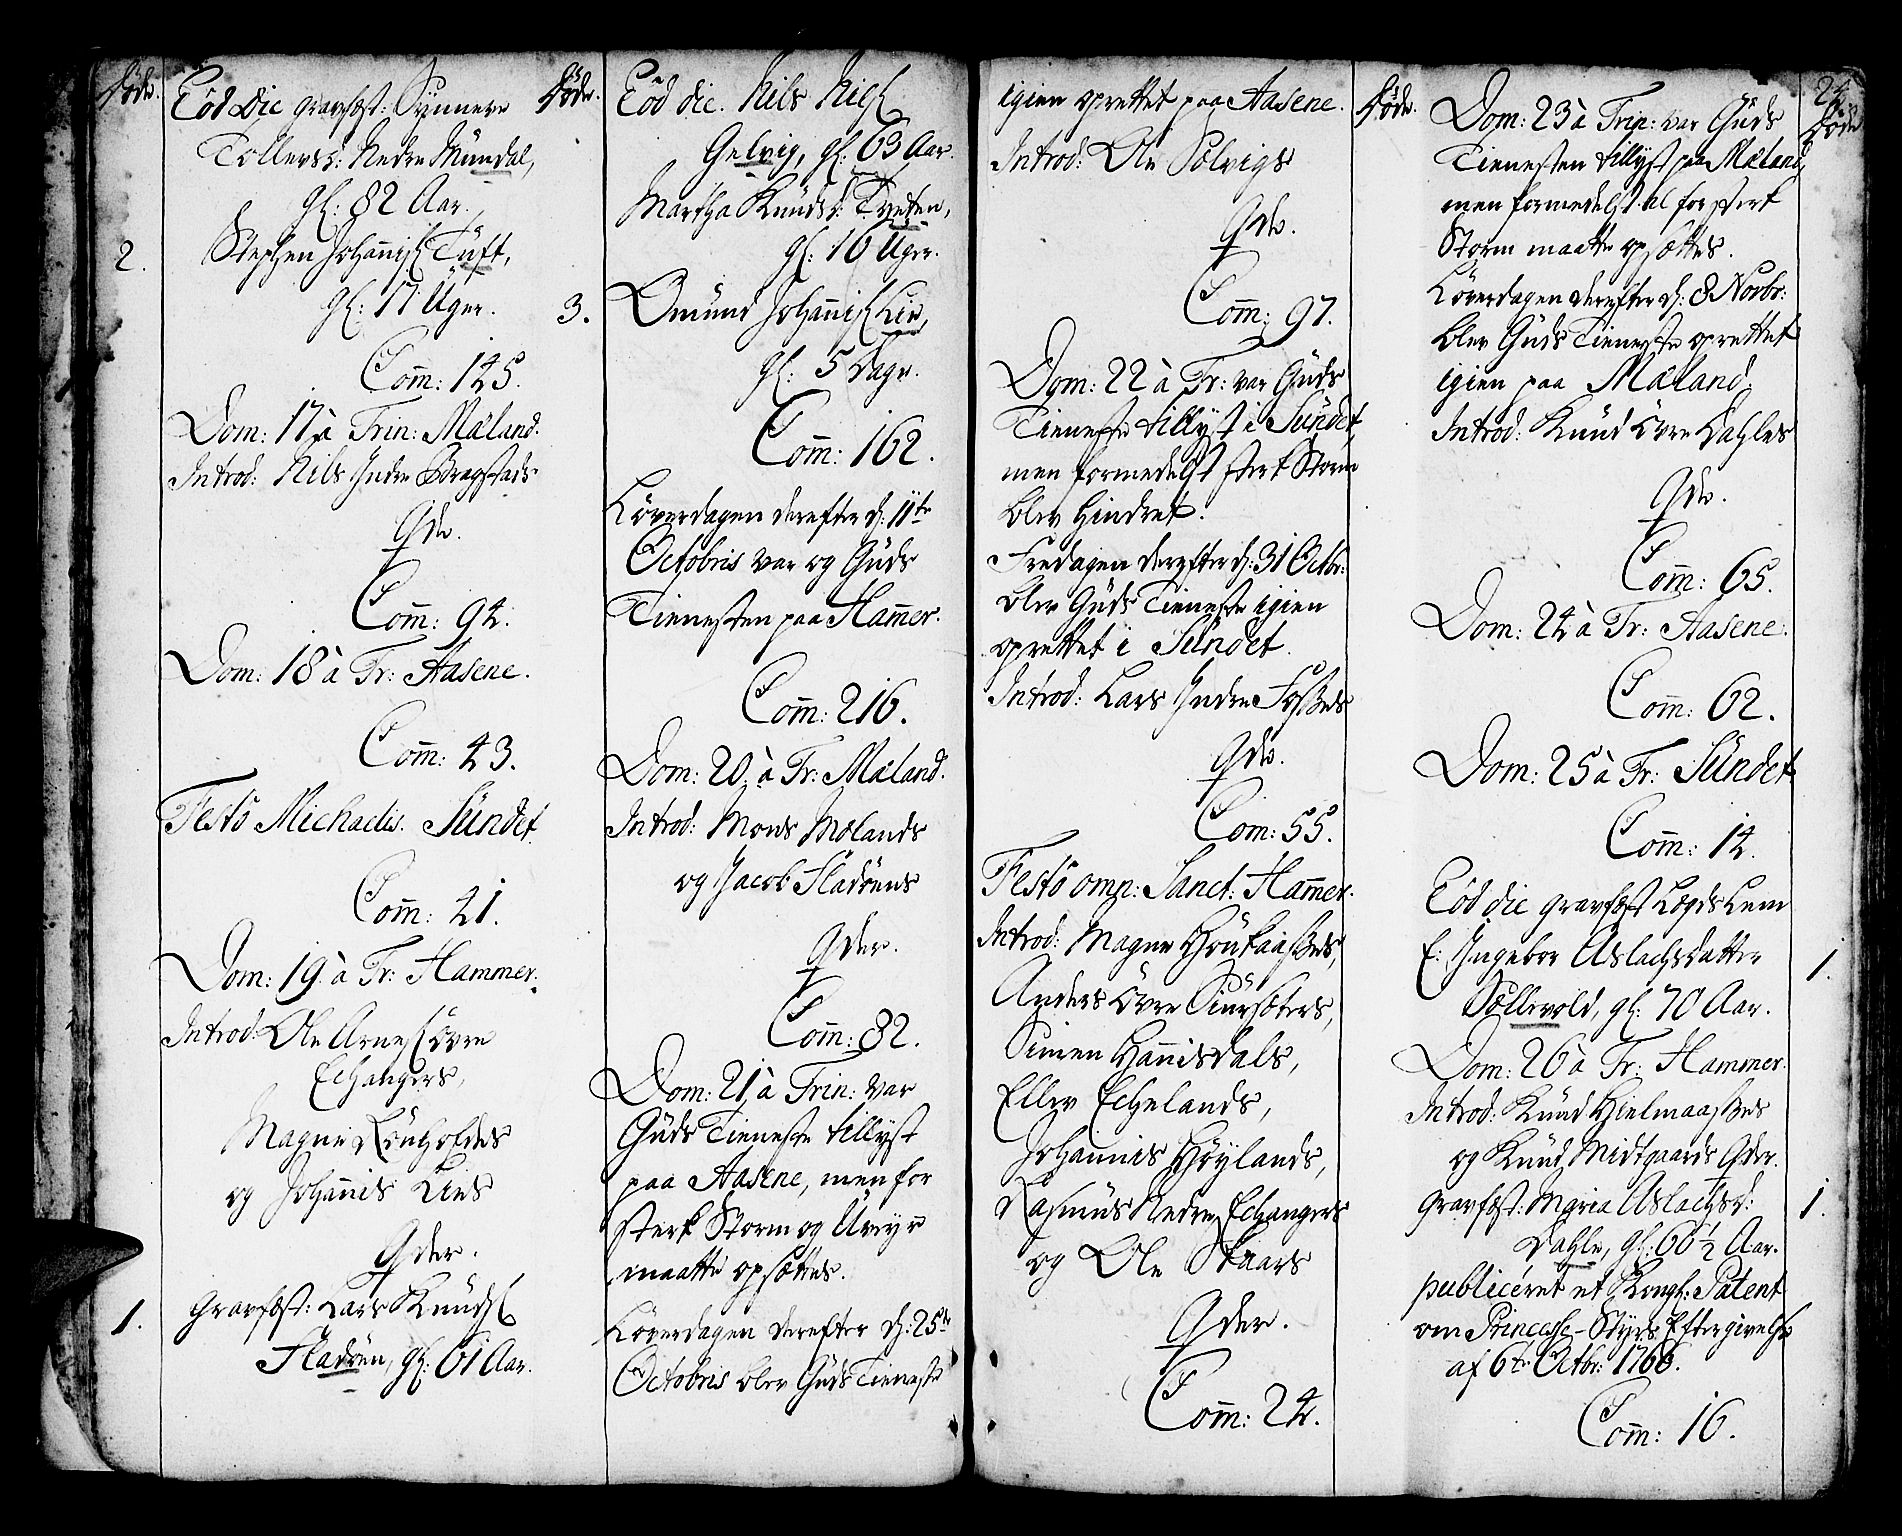 Døde.
Eôd Die gravfæst: Synneve
Tollevsd: Nedre Mündal,
gl: 82 Aar.
2.
Stephen Johañisß Tüft,
gl: 17 Üger.
Com̃: 145.
Dom: 17 à Trin: Mæland.
Introd: Nils Indre Bragstads
Qde.
Com̃: 94.
Dom: 18 à Tr: Aasene.
Com̃: 43.
Festô Michaelis. Sündet.
Com̃: 41.
Dom: 19 à Tr: Hammer.
Introd: Ole Arnesß Övre
Echangers,
Magne Rönholdes
og Johañis Lies
Qder.
1.
Gravfæst: Lars Knüdsß
Fladöen, gl: 61 Aar.
Døde.
Eôd die. Nils Nilsß
Gelvig, gl: 63 Aar.
Martha Knüdsd: Tveten,
gl: 16 Üger.
3.
Omünd Johañisß Lie,
gl: 5 Dage.
Com̃: 162.
Löverdagen derefter d: 11te
Octobris var og Güds
Tienesten paa Ham̃er.
Com̃: 216.
Dom: 20 à Tr: Mæland.
Introd: Mons Mølands
og Jacob Fladöens
Qder.
Com̃: 82.
Dom: 21 à Trin: var
Güds Tieneste tillyst
paa Aasene, men for
sterk Storm og Üveyr
maatte opsættes.
Löverdagen derefter d: 25de
Octobris blev Güds Tieneste
igien oprettet paa Aasene.
Introd: Ole Solvigs
Qde.
Com̃: 97.
Dom: 22 à Tr: var Güds
Tieneste tillyst i Sündet,
men formedelst sterk Storm
blev hindret.
Fredagen derefter d: 31 Octbr:
blev Güds Tieneste igien
oprettet i Sündet.
Introd: Lars Indre Fosses
Qde.
Com: 55.
Festô omn: Sanct: Ham̃er.
Introd: Magne Höükaasses,
Anders Övre Siürsæters,
Simen Hañisdals,
Ellev Echelands,
Johannis Höylands,
Rasmüs Nedre Echangers
og Ole Skaars
Qder.
Com̃: 24.
Døde.
24.
Døde.
Dom: 23 à Trin: var Güds
Tienesten tillyst paa Mæland,
men formedelst al for sterk
Storm maatte opsættes.
Löverdagen derefter d: 8 Novbr:
blev Güds Tieneste oprettet
igien paa Mæland.
Introd: Knüd Övre Dahles
Qde.
Com̃: 65.
Dom: 24 à Tr: Aasene.
Com̃: 62.
Dom: 25 à Tr: Sündet.
Com̃: 14.
Eôd die gravfæst Lægds Lem
E: Ingebor Aslachsdatter
1.
Sællevold, gl: 70 Aar.
Dom: 26 à Tr: Hammer.
Introd: Knüd Hielmaasses
og Knüd Midtgaards Qder.
Gravfæst: Maria Aslachsd:
1.
Dahle, gl: 66 1/2 Aar.
publiceret et Kongl: Patent
om Princesse-Styrs Eftergivelse
af 6te Octbr: 1766.
Com̃: 16.